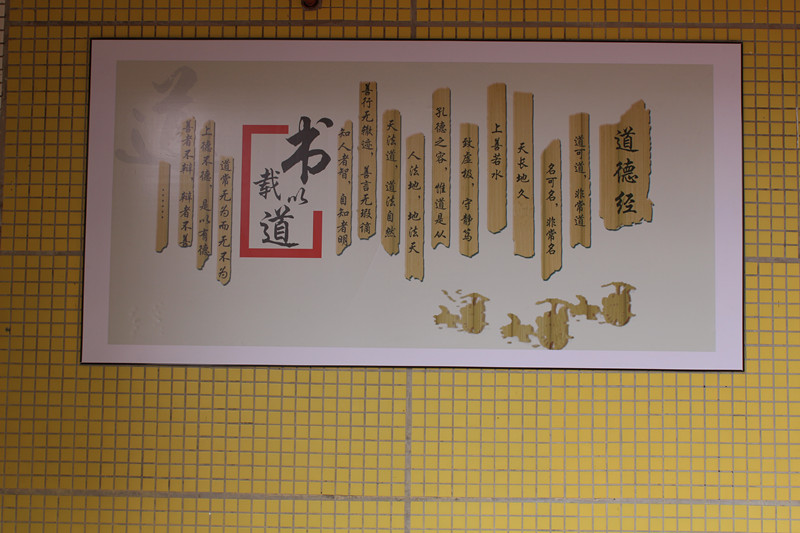 道德经
道可道，非常道
名可名，非常名
天长地久
上善若水
致虚极，守静笃
孔德之容，惟道是从
人法地，地法天
天法道，道法自然
善行无辙迹，善言无瑕谪
知人者智，自知者明
书以载道
道常无为而无不为
上德不德，是以有德
善者不辩，辩者不善
………
道